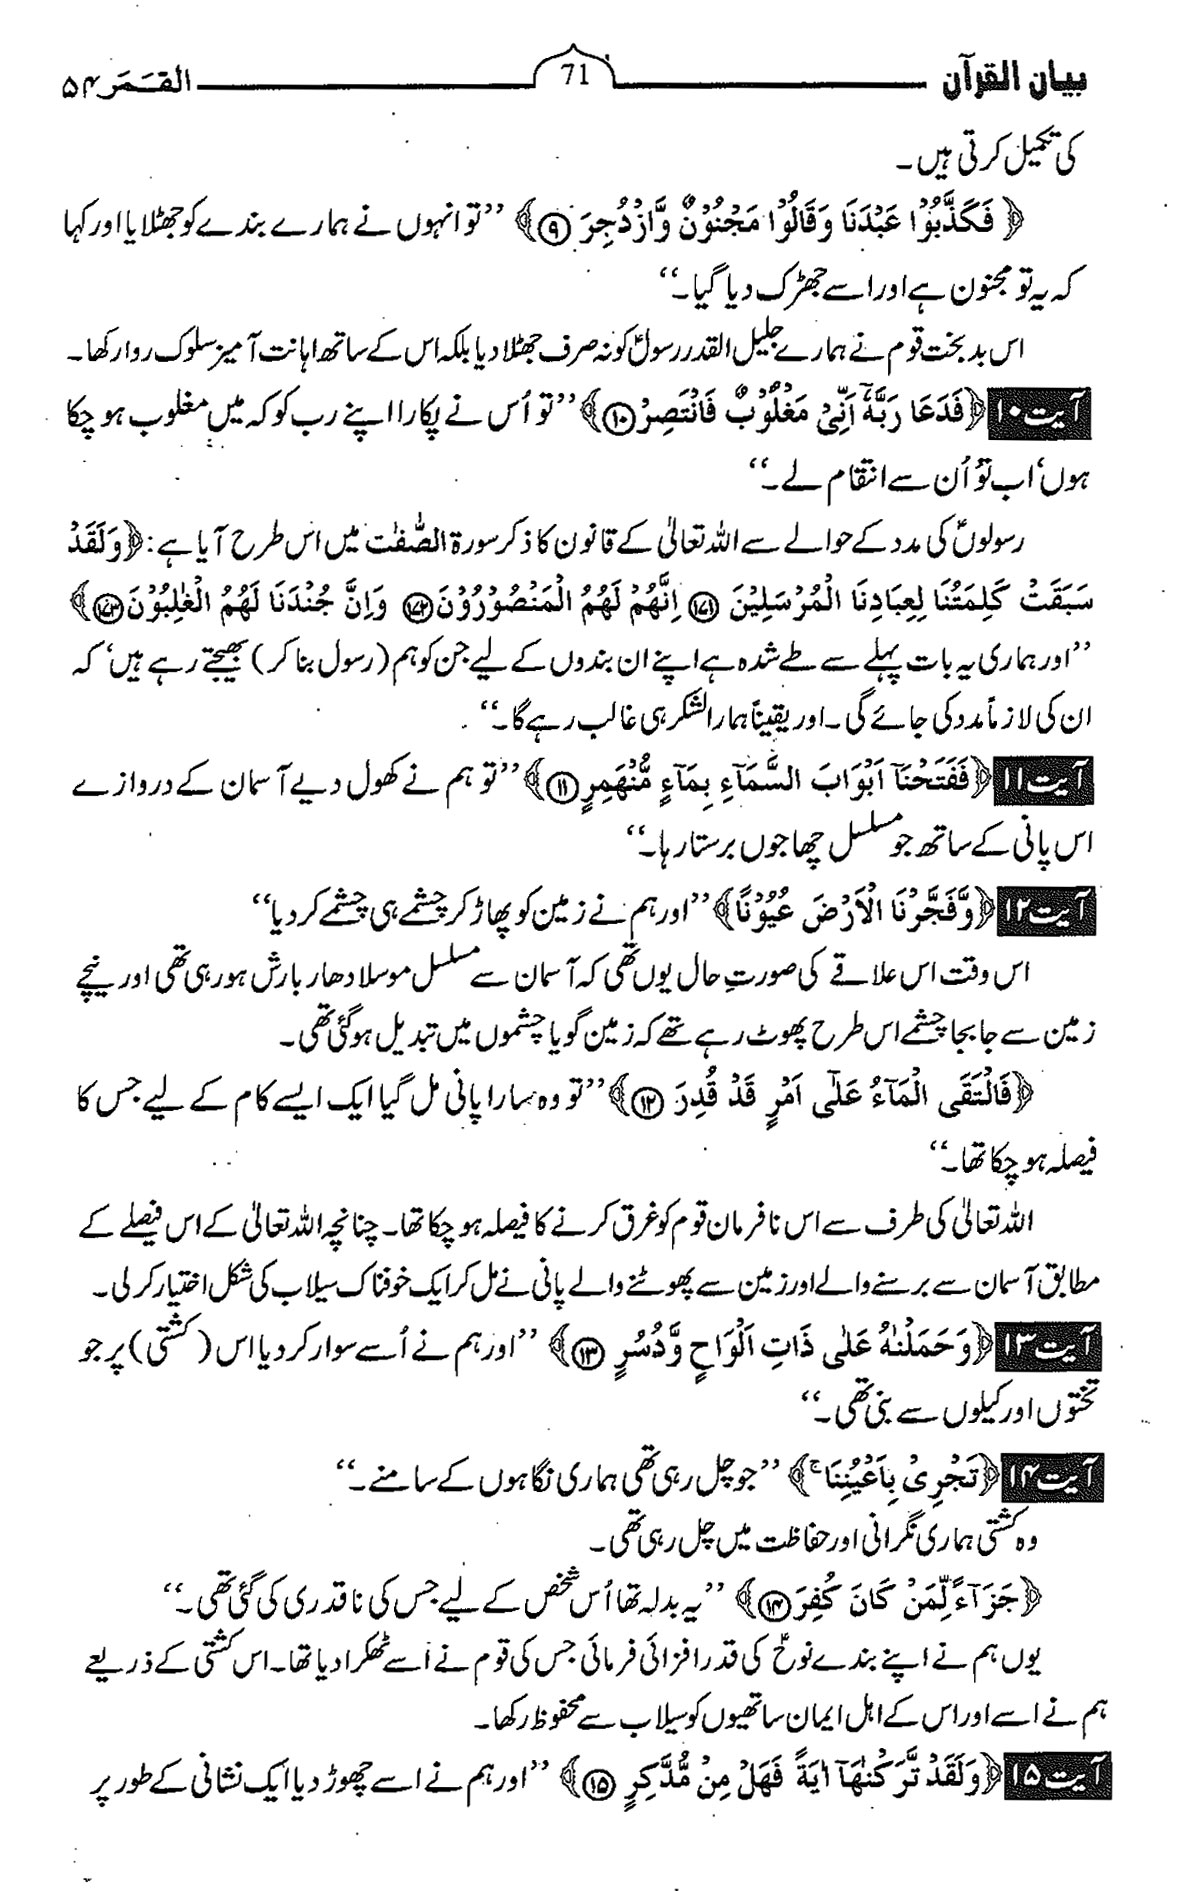 بیان القرآن 71 القَمَر ۵۴
کی تکمیل کرتی ہیں۔
﴿فَکَذَّبُوۡا عَبۡدَنَا وَقَالُوۡا مَجۡنُوۡنٌ وَّازۡدُجِرَ ﴿۹﴾﴾ ’’تو انہوں نے ہمارے بندے کو جھٹلایا اور کہا
کہ یہ تو مجنون ہے اور اسے جھڑک دیا گیا۔‘‘
اس بدبخت قوم نے ہمارے جلیل القدر رسولؑ کو نہ صرف جھٹلا دیا بلکہ اس کے ساتھ اہانت آمیز سلوک روا رکھا۔
آیت ۱۰ ﴿فَدَعَا رَبَّهٗۤ اَنِّیۡ مَغۡلُوۡبٌ فَانۡتَصِرۡ ﴿۱۰﴾﴾ ’’تو اُس نے پکارا اپنے رب کو کہ میں مغلوب ہو چکا
ہوں‘ اب تُو اُن سے انتقام لے۔‘‘
رسولوںؑ کی مدد کے حوالے سے اللہ تعالیٰ کے قانون کا ذکر سورۃ الصّٰفّٰت میں اس طرح آیا ہے: ﴿وَلَقَدۡ
سَبَقَتۡ کَلِمَتُنَا لِعِبَادِنَا الۡمُرۡسَلِیۡنَ ﴿۱۷۱﴾ اِنَّهُمۡ لَهُمُ الۡمَنۡصُوۡرُوۡنَ ﴿۱۷۲﴾ وَاِنَّ جُنۡدَنَا لَهُمُ الۡغٰلِبُوۡنَ ﴿۱۷۳﴾﴾
’’اور ہماری یہ بات پہلے سے طے شدہ ہے اپنے ان بندوں کے لیے جن کو ہم (رسول بنا کر) بھیجتے رہے ہیں‘ کہ
ان کی لازماً مدد کی جائے گی۔ اور یقیناً ہمارا لشکر ہی غالب رہے گا۔‘‘
آیت ۱۱ ﴿فَفَتَحۡنَاۤ اَبۡوَابَ السَّمَآءِ بِمَآءٍ مُّنۡهَمِرٍ ﴿۱۱﴾﴾ ’’تو ہم نے کھول دیے آسمان کے دروازے
اس پانی کے ساتھ جو مسلسل چھاجوں برستا رہا۔‘‘
آیت ۱۲ ﴿وَّفَجَّرۡنَا الۡاَرۡضَ عُیُوۡنًا﴾ ’’اور ہم نے زمین کو پھاڑ کر چشمے ہی چشمے کر دیا‘‘
اس وقت اس علاقے کی صورتِ حال یوں تھی کہ آسمان سے مسلسل موسلا دھار بارش ہو رہی تھی اور نیچے
زمین سے جا بجا چشمے اس طرح پھوٹ رہے تھے کہ زمین گویا چشموں میں تبدیل ہو گئی تھی۔
﴿فَالۡتَقَی الۡمَآءُ عَلٰۤی اَمۡرٍ قَدۡ قُدِرَ ﴿۱۲﴾﴾ ’’تو وہ سارا پانی مل گیا ایک ایسے کام کے لیے جس کا
فیصلہ ہو چکا تھا۔‘‘
اللہ تعالیٰ کی طرف سے اس نافرمان قوم کو غرق کرنے کا فیصلہ ہو چکا تھا۔ چنانچہ اللہ تعالیٰ کے اس فیصلے کے
مطابق آسمان سے برسنے والے اور زمین سے پھوٹنے والے پانی نے مل کر ایک خوفناک سیلاب کی شکل اختیار کر لی۔
آیت ۱۳ ﴿وَحَمَلۡنٰهُ عَلٰی ذَاتِ اَلۡوَاحٍ وَّدُسُرٍ ﴿۱۳﴾﴾ ’’اور ہم نے اُسے سوار کر دیا اس (کشتی) پر جو
تختوں اور کیلوں سے بنی تھی۔‘‘
آیت ۱۴ ﴿تَجۡرِیۡ بِاَعۡیُنِنَا ۚ﴾ ’’جو چل رہی تھی ہماری نگاہوں کے سامنے۔‘‘
وہ کشتی ہماری نگرانی اور حفاظت میں چل رہی تھی۔
﴿جَزَآءً لِّمَنۡ کَانَ کُفِرَ ﴿۱۴﴾﴾ ’’یہ بدلہ تھا اُس شخص کے لیے جس کی ناقدری کی گئی تھی۔‘‘
یوں ہم نے اپنے بندے نوحؑ کی قدر افزائی فرمائی جس کی قوم نے اسے ٹھکرا دیا تھا۔ اس کشتی کے ذریعے
ہم نے اسے اور اس کے اہل ایمان ساتھیوں کو سیلاب سے محفوظ رکھا۔
آیت ۱۵ ﴿وَلَقَدۡ تَّرَکۡنٰهَاۤ اٰیَةً فَهَلۡ مِنۡ مُّدَّکِرٍ ﴿۱۵﴾﴾ ’’اور ہم نے اسے چھوڑ دیا ایک نشانی کے طور پر